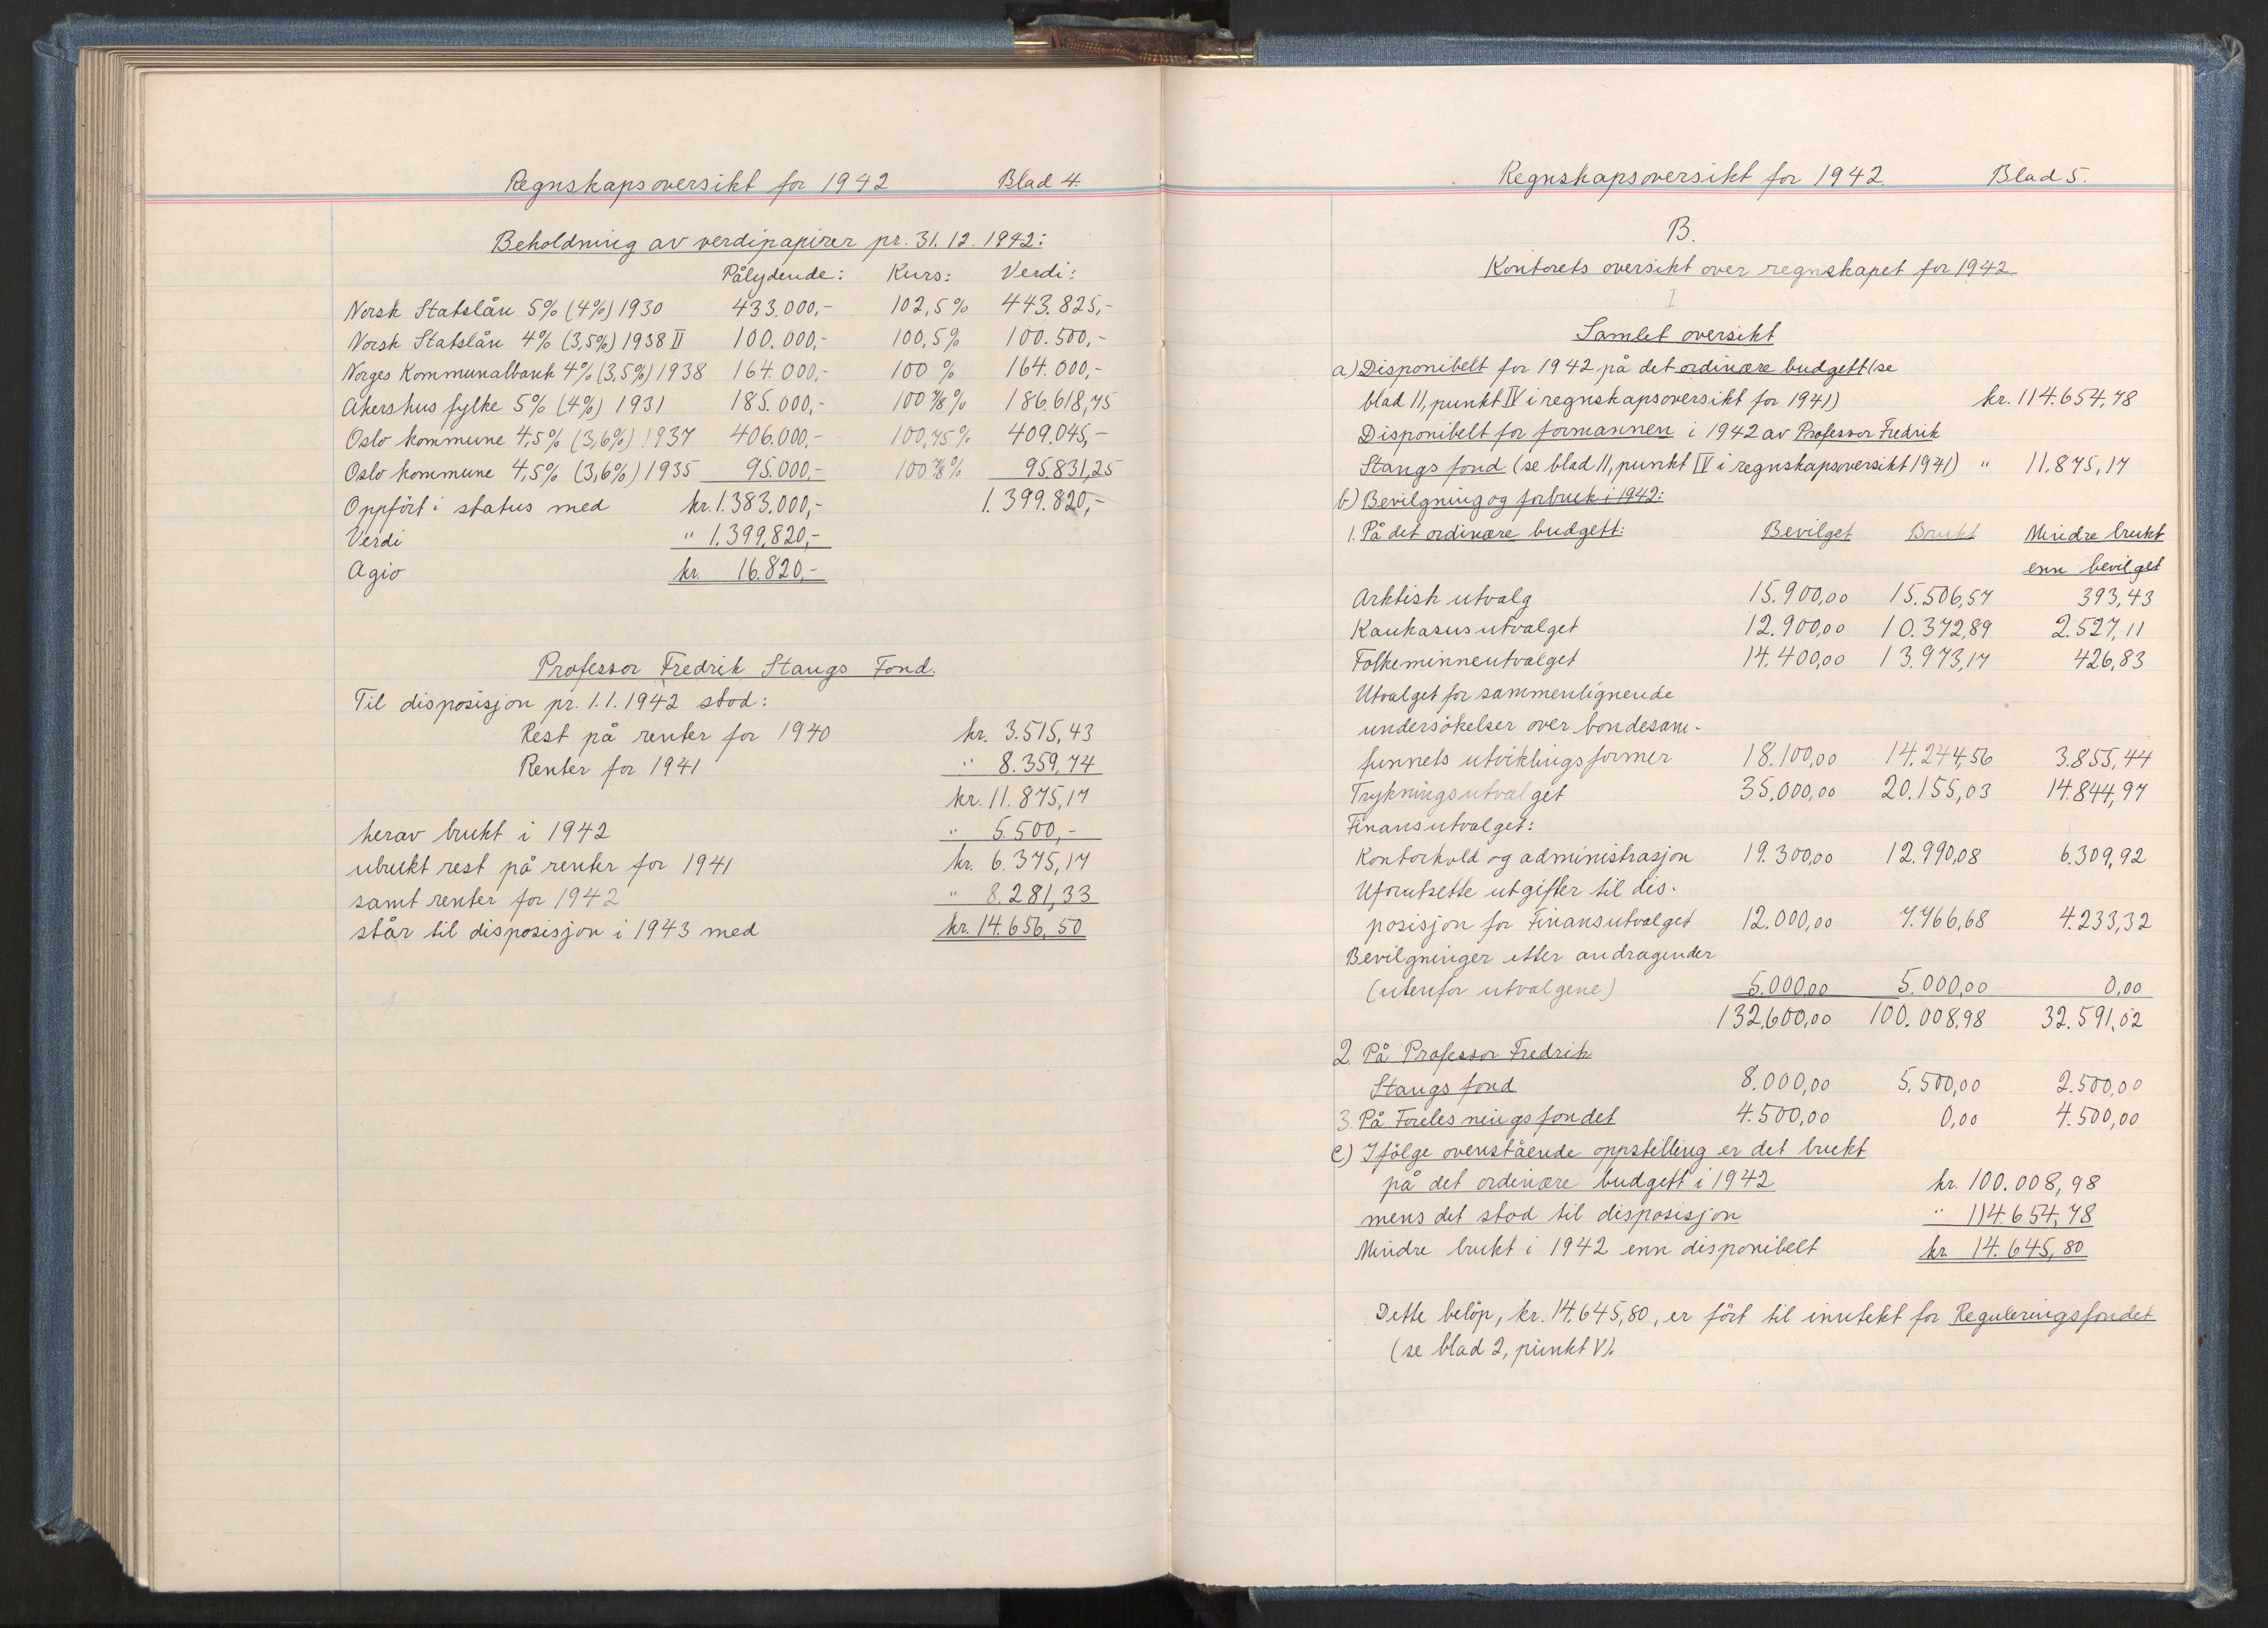 Regnskapsoversikt for 1942 Blad 4.
Beholdning av verdipapirer pr. 31.12.1942:
Pålydende: Kurs: Verdi:
Norsk Statslån 5% (4%) 1930 433.000,- 102,5% 443.825,-
Norsk Statslån 4% (3,5%) 1938 II 100.000,- 100,5% 100.500,-
Norges Kommunalbank 4% (3,5%) 1938 164.000,- 100 % 164.000,-
Akershus fylke 5% (4%) 1931 185.000,- 100 7/8% 186.618,75
Oslo kommune 4,5% (3,6%) 1937 406.000,- 100,75% 409.045,-
Oslo kommune 4,5% (3,6%) 1935 95.000,- 100 7/8% 95.831,25
Oppført i status med kr. 1.383.000,- 1.399.820,-
Verdi " 1.399.820,-
Agio kr. 16.820,-
Professor Fredrik Stangs Fond.
Til disposisjon pr. 1.1.1942 stod:
Rest på renter for 1940 kr. 3.515,43
Renter for 1941 " 8.359,74
kr. 11.875,17
herav brukt i 1942 " 5.500,-
ubrukt rest på renter for 1941 kr. 6.375,17
samt renter for 1942 " 8.281,33
står til disposisjon i 1943 med kr. 14.656,50
Regnskapsoversikt for 1942 Blad 5.
B.
Kontorets oversikt over regnskapet for 1942
I
Samlet oversikt
a) Disponibelt for 1942 på det ordinære budgett (se
blad 11, punkt IV i regnskapsoversikt for 1941) kr. 114.654,78
Disponibelt for formannen i 1942 av Professor Fredrik
Stangs fond (se blad 11, punkt IV i regnskapsoversikt 1941) " 11.875,17
b) Bevilgning og forbruk i 1942:
1. På det ordinære budgett: Bevilget Brukt Mindre brukt
enn bevilget
Arktisk utvalg 15.900,00 15.506,57 393,43
Kaukasusutvalget 12.900,00 10.372,89 2.527,11
Folkeminneutvalget 14.400,00 13.973,17 426,83
Utvalget for sammenlignende
undersøkelser over bondesam-
funnets utviklingsformer 18.100,00 14.244,56 3.855,44
Trykningsutvalget 35.000,00 20.155,03 14.844,97
Finansutvalget:
Kontorhold og administrasjon 19.300,00 12.990,08 6.309,92
Uforutsette utgifter til dis-
posisjon for Finansutvalget 12.000,00 7.766,68 4.233,32
Bevilgninger etter andragender
(utenfor utvalgene) 5.000,00 5.000,00 0,00
132.600,00 100.008,98 32.591,02
2. På Professor Fredrik
Stangs fond 8.000,00 5.500,00 2.500,00
3. På Forelesningsfondet 4.500,00 0,00 4.500,00
c) Ifølge ovenstående oppstilling er det brukt
på det ordinære budgett i 1942 kr. 100.008,98
mens det stod til disposisjon " 114.654,78
Mindre brukt i 1942 enn disponibelt kr. 14.645,80
Dette beløp, kr. 14.645,80, er ført til inntekt for Reguleringsfondet
(se blad 2, punkt V).